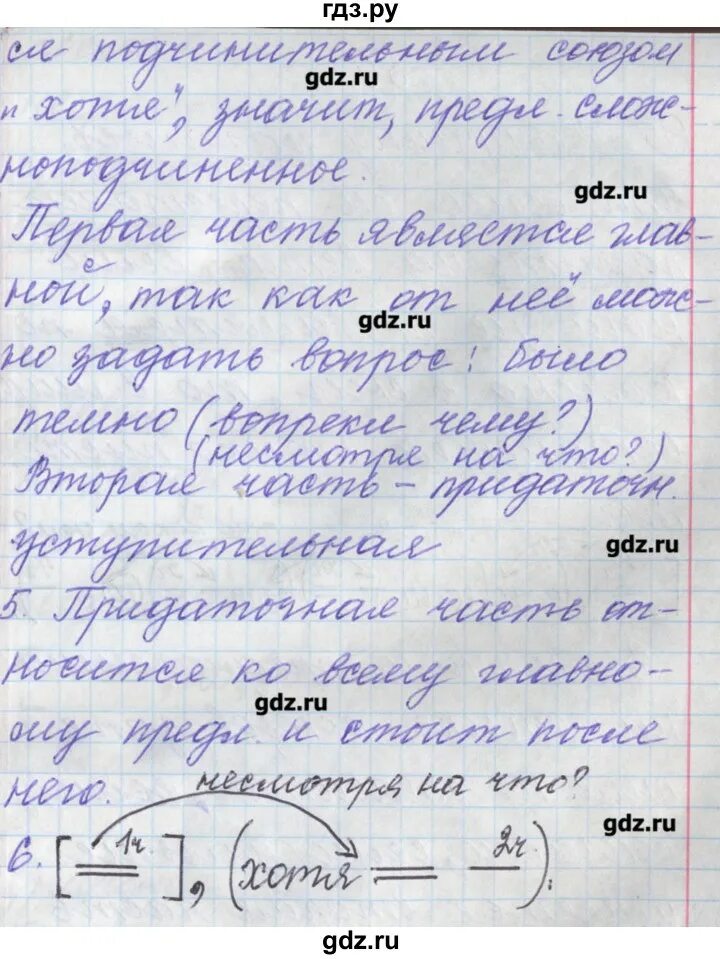 гдз.ру
ся подчинительным союзом
gdz.ru
„хотя", значит, предл. слож-
ноподчиненное.
gdz.ru
Первая часть является глав-
ной, так как от неё мож-
gdz.ru
но задать вопрос: было
темно (вопреки чему?)
(несмотря на что?)
Вторая часть – придаточн.
уступительная
gdz.ru
5. Придаточная часть от-
носится ко всему главно-
gdz.ru
му предл. и стоит после
него. несмотря на что?
gdz.ru
6. [ 1ч. ], (хотя 2ч.).
gdz.ru